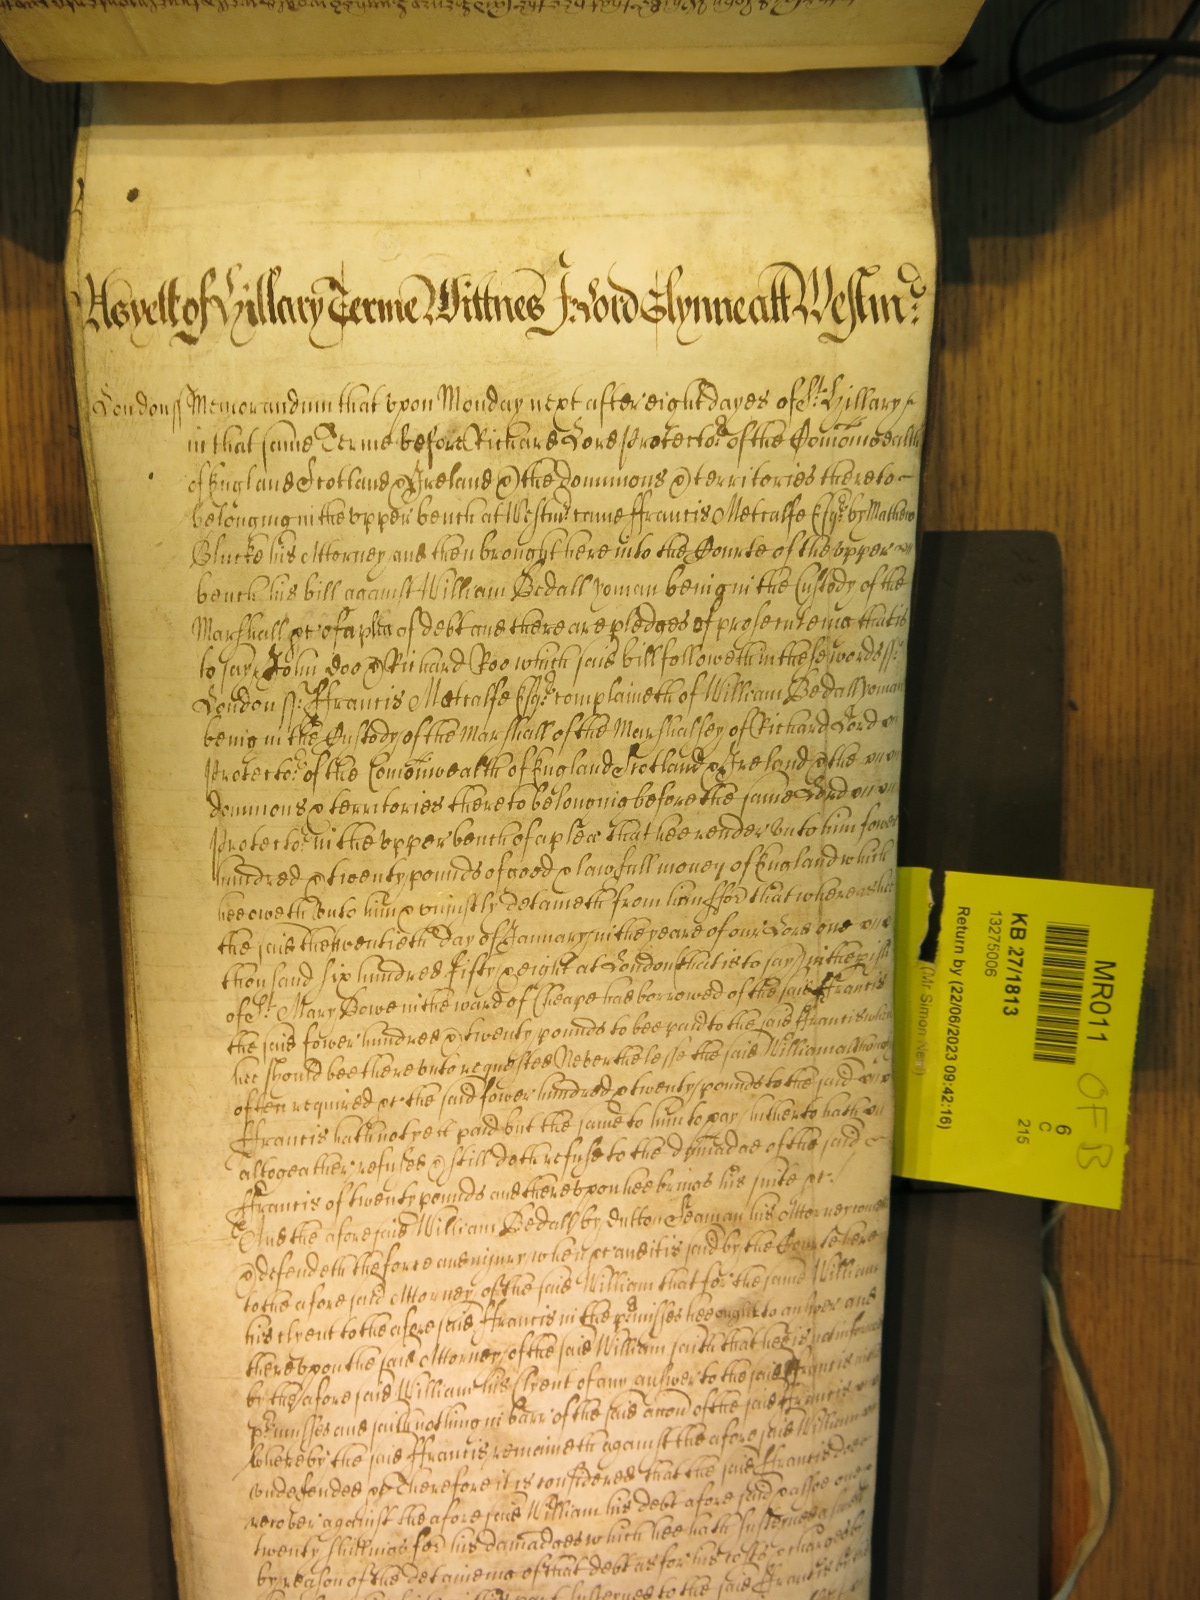 As yett of Hillary Terme Wittnes J: Lord Glynne att Westmr:
London ss Memorandum that vpon Monday next after eight dayes of St. Hillary
in that same Terme before Richard Lord Protector of the Comonwealth
of England Scotland & Ireland & the dominions & territories thereto
belonging in the vpper bench at Westmr: came ffrancis Metcalfe Esqr. by Mathew
his Attorney and then brought here into the Courte of the vpper
bench his bill against William Bedall yoman being in the Custody of the
Marshall &c of a plea of debt and there are pledges of prosecuteing that is
to say John Doo & Richard Roo which said bill followeth in these words ss:
London ss: ffrancis Metcalfe Esqr. complaineth of William Bedall yoman
being in the Custody of the Marshall of the Marshalsey of Richard Lord
Protector of the Comonwealth of England Scotland & Ireland & the
dominions & territories thereto belonging before the same Lord
Protector in the vpper bench of a plea that hee render vnto him fower
hundred & twenty pounds of good & lawfull money of England which
hee oweth vnto him & vniustly detaineth from him ffor that whereas hee
the said the twentieth day of January in the yeare of our Lord one
thousand six hundred fifty & eight at London that is to say in the pish
of St. Mary Bowe in the ward of Cheape had borrowed of the said ffrancis
the said fower hundred & twenty pounds to bee paid to the said ffrancis when
hee should bee therevnto requested Neverthelesse the said William although
often required &c the said fower hundred & twenty pounds to the said
ffrancis hath not yett paid but the same to him to pay hitherto hath
altogeather refused & still doth refuse to the damadge of the said
ffrancis of twenty pounds and therevpon hee brings his suite &c:
And the aforesaid William Bedall by Dutton Seaman his Attorney comes
& defendeth the force and iniury when &c and it is said by the Courte here
to the aforesaid Attorney of the said William that for the same William
his clyent to the aforesaid ffrancis in the pr.misses hee ought to answer and
therevpon the said Attorney of the said William saith that hee is not informed
by the aforesaid William his Clyent of any answer to the said ffrancis
pr.misses and saith nothing in barr of the said accon of the said ffrancis
whereby the said ffrancis remaineth against the aforesaid William
vndefended &c Therefore it is considered that the said ffrancis doe
recover against the aforesaid William his debt aforesaid
twenty shillings for his damadges which hee hath susteined
by reason of the deteineing of that debt as for his costs & charges
to the said ffrancis
MR011
KB 27/1813
13275006
Return by (22/06/2023 09:42:16)
(Mr Simon Neal)
6
C
215
OFB